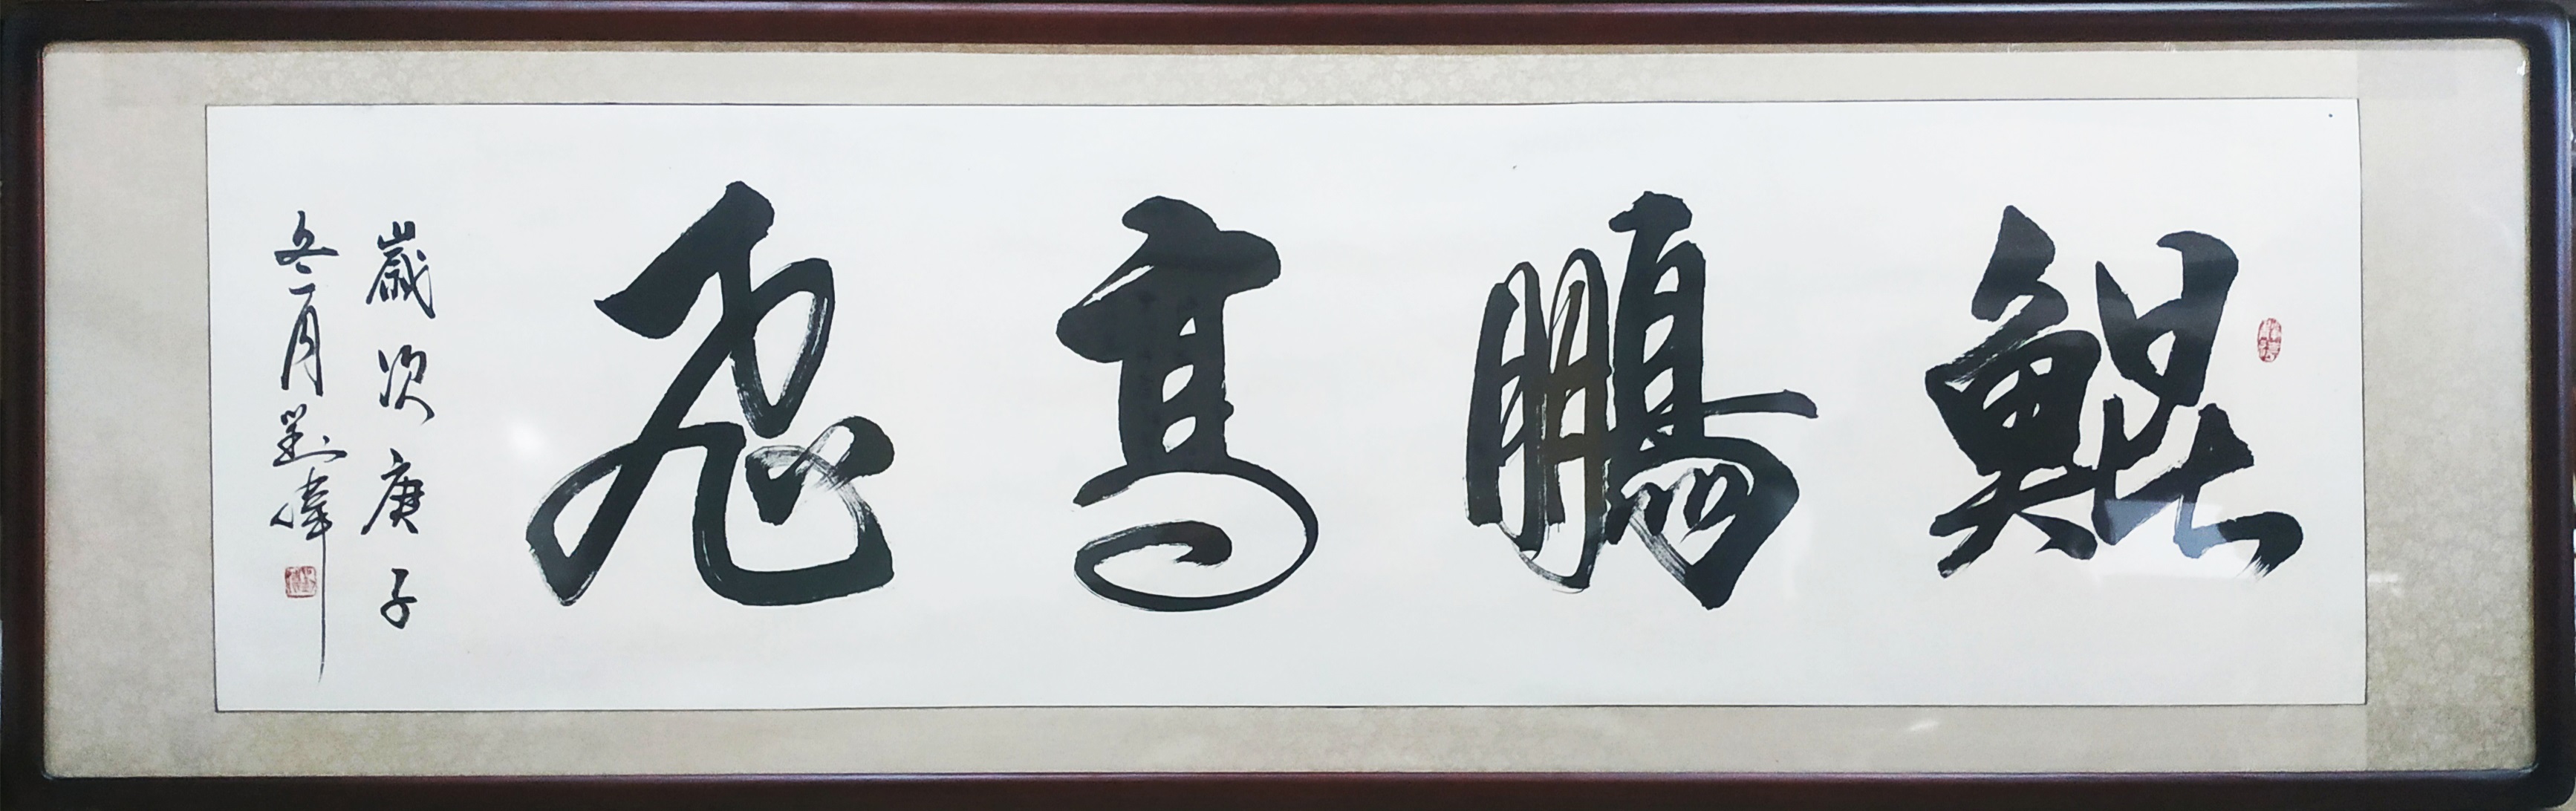 鯤鵬高飛
歲次庚子
冬月劉偉